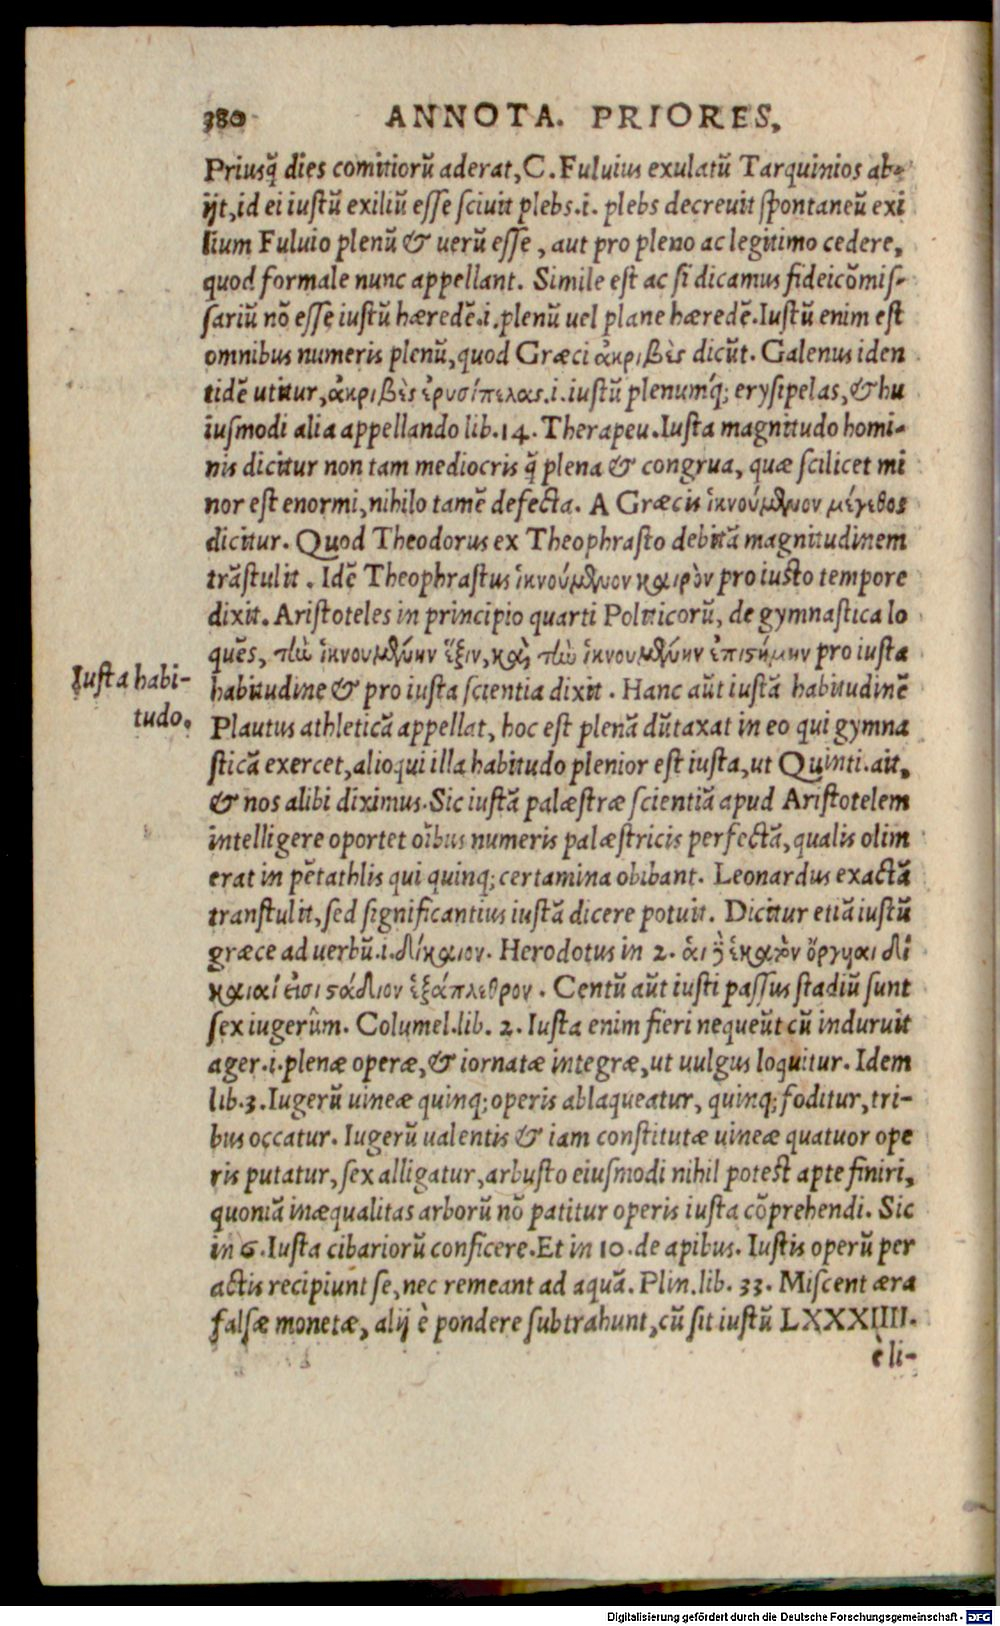 380 ANNOTA. PRIORES,
Priusq̃ dies comitiorũ aderat, C. Fuluius exulatũ Tarquinios ab-
ijt, id ei iustũ exiliũ esse sciuit plebs.i. plebs decreuit spontaneũ exi
lium Fuluio plenũ & uerũ esse, aut pro pleno ac legitimo cedere,
quod formale nunc appellant. Simile est ac si dicamus fideicõmis-
sariũ nõ esse iustũ hæredẽ.i.plenũ uel plane hæredẽ.Iustũ enim est
omnibus numeris plenũ, quod Græci ἀκριβὲς dicũt. Galenus iden
tidẽ utitur, ἀκριβὲς ἐρυσίπελας.i. iustũ plenumq́; erysipelas, & hu
iusmodi alia appellando lib.14. Therapeu.Iusta magnitudo homi-
nis dicitur non tam mediocris q̃ plena & congrua, quæ scilicet mi
nor est enormi, nihilo tamẽ defecta. A Græcis ἱκνούμενον μέγεθος
dicitur. Quod Theodorus ex Theophrasto debitã magnitudinem
trãstulit. Idẽ Theophrastus ἱκνούμενον καιρὸν pro iusto tempore
dixit. Aristoteles in principio quarti Politicorũ, de gymnastica lo
quẽs, τὴν ἱκνουμένην ἕξιν, καὶ τὴν ἱκνουμένην ἐπιστήμην pro iusta
Iusta habi-
tudo.
habitudine & pro iusta scientia dixit. Hanc aũt iustã habitudinẽ
Plautus athleticã appellat, hoc est plenã dũtaxat in eo qui gymna
sticã exercet, alioqui illa habitudo plenior est iusta, ut Quinti.ait,
& nos alibi diximus. Sic iustã palæstræ scientiã apud Aristotelem
intelligere oportet oĩbus numeris palæstricis perfectã, qualis olim
erat in pẽtathlis qui quinq; certamina obibant. Leonardus exactã
transtulit, sed significantius iustã dicere potuit. Dicitur etiã iustũ
græce ad uerbũ.i.δίκαιον. Herodotus in 2. ἁι δ ἑκατὸν ὄργυαι δί
καιαί εἰσι στάδιον ἑξάπλεθρον. Centũ aũt iusti passus stadiũ sunt
sex iugerûm. Columel.lib. 2. Iusta enim fieri nequeũt cũ induruit
ager.i.plenæ operæ, & iornatæ integræ, ut uulgus loquitur. Idem
lib.3. Iugerũ uineæ quinq; operis ablaqueatur, quinq; foditur, tri-
bus occatur. Iugerũ ualentis & iam constitutæ uineæ quatuor ope
ris putatur, sex alligatur, arbusto eiusmodi nihil potest apte finiri,
quoniã inæqualitas arborũ nõ patitur operis iusta cõprehendi. Sic
in 6. Iusta cibariorũ conficere. Et in 10. de apibus. Iustis operũ per
actis recipiunt se, nec remeant ad aquã. Plin.lib. 33. Miscent æra
falsæ monetæ, alij è pondere subtrahunt, cũ sit iustũ LXXXIIII.
è li-
Digitalisierung gefördert durch die Deutsche Forschungsgemeinschaft - DFG